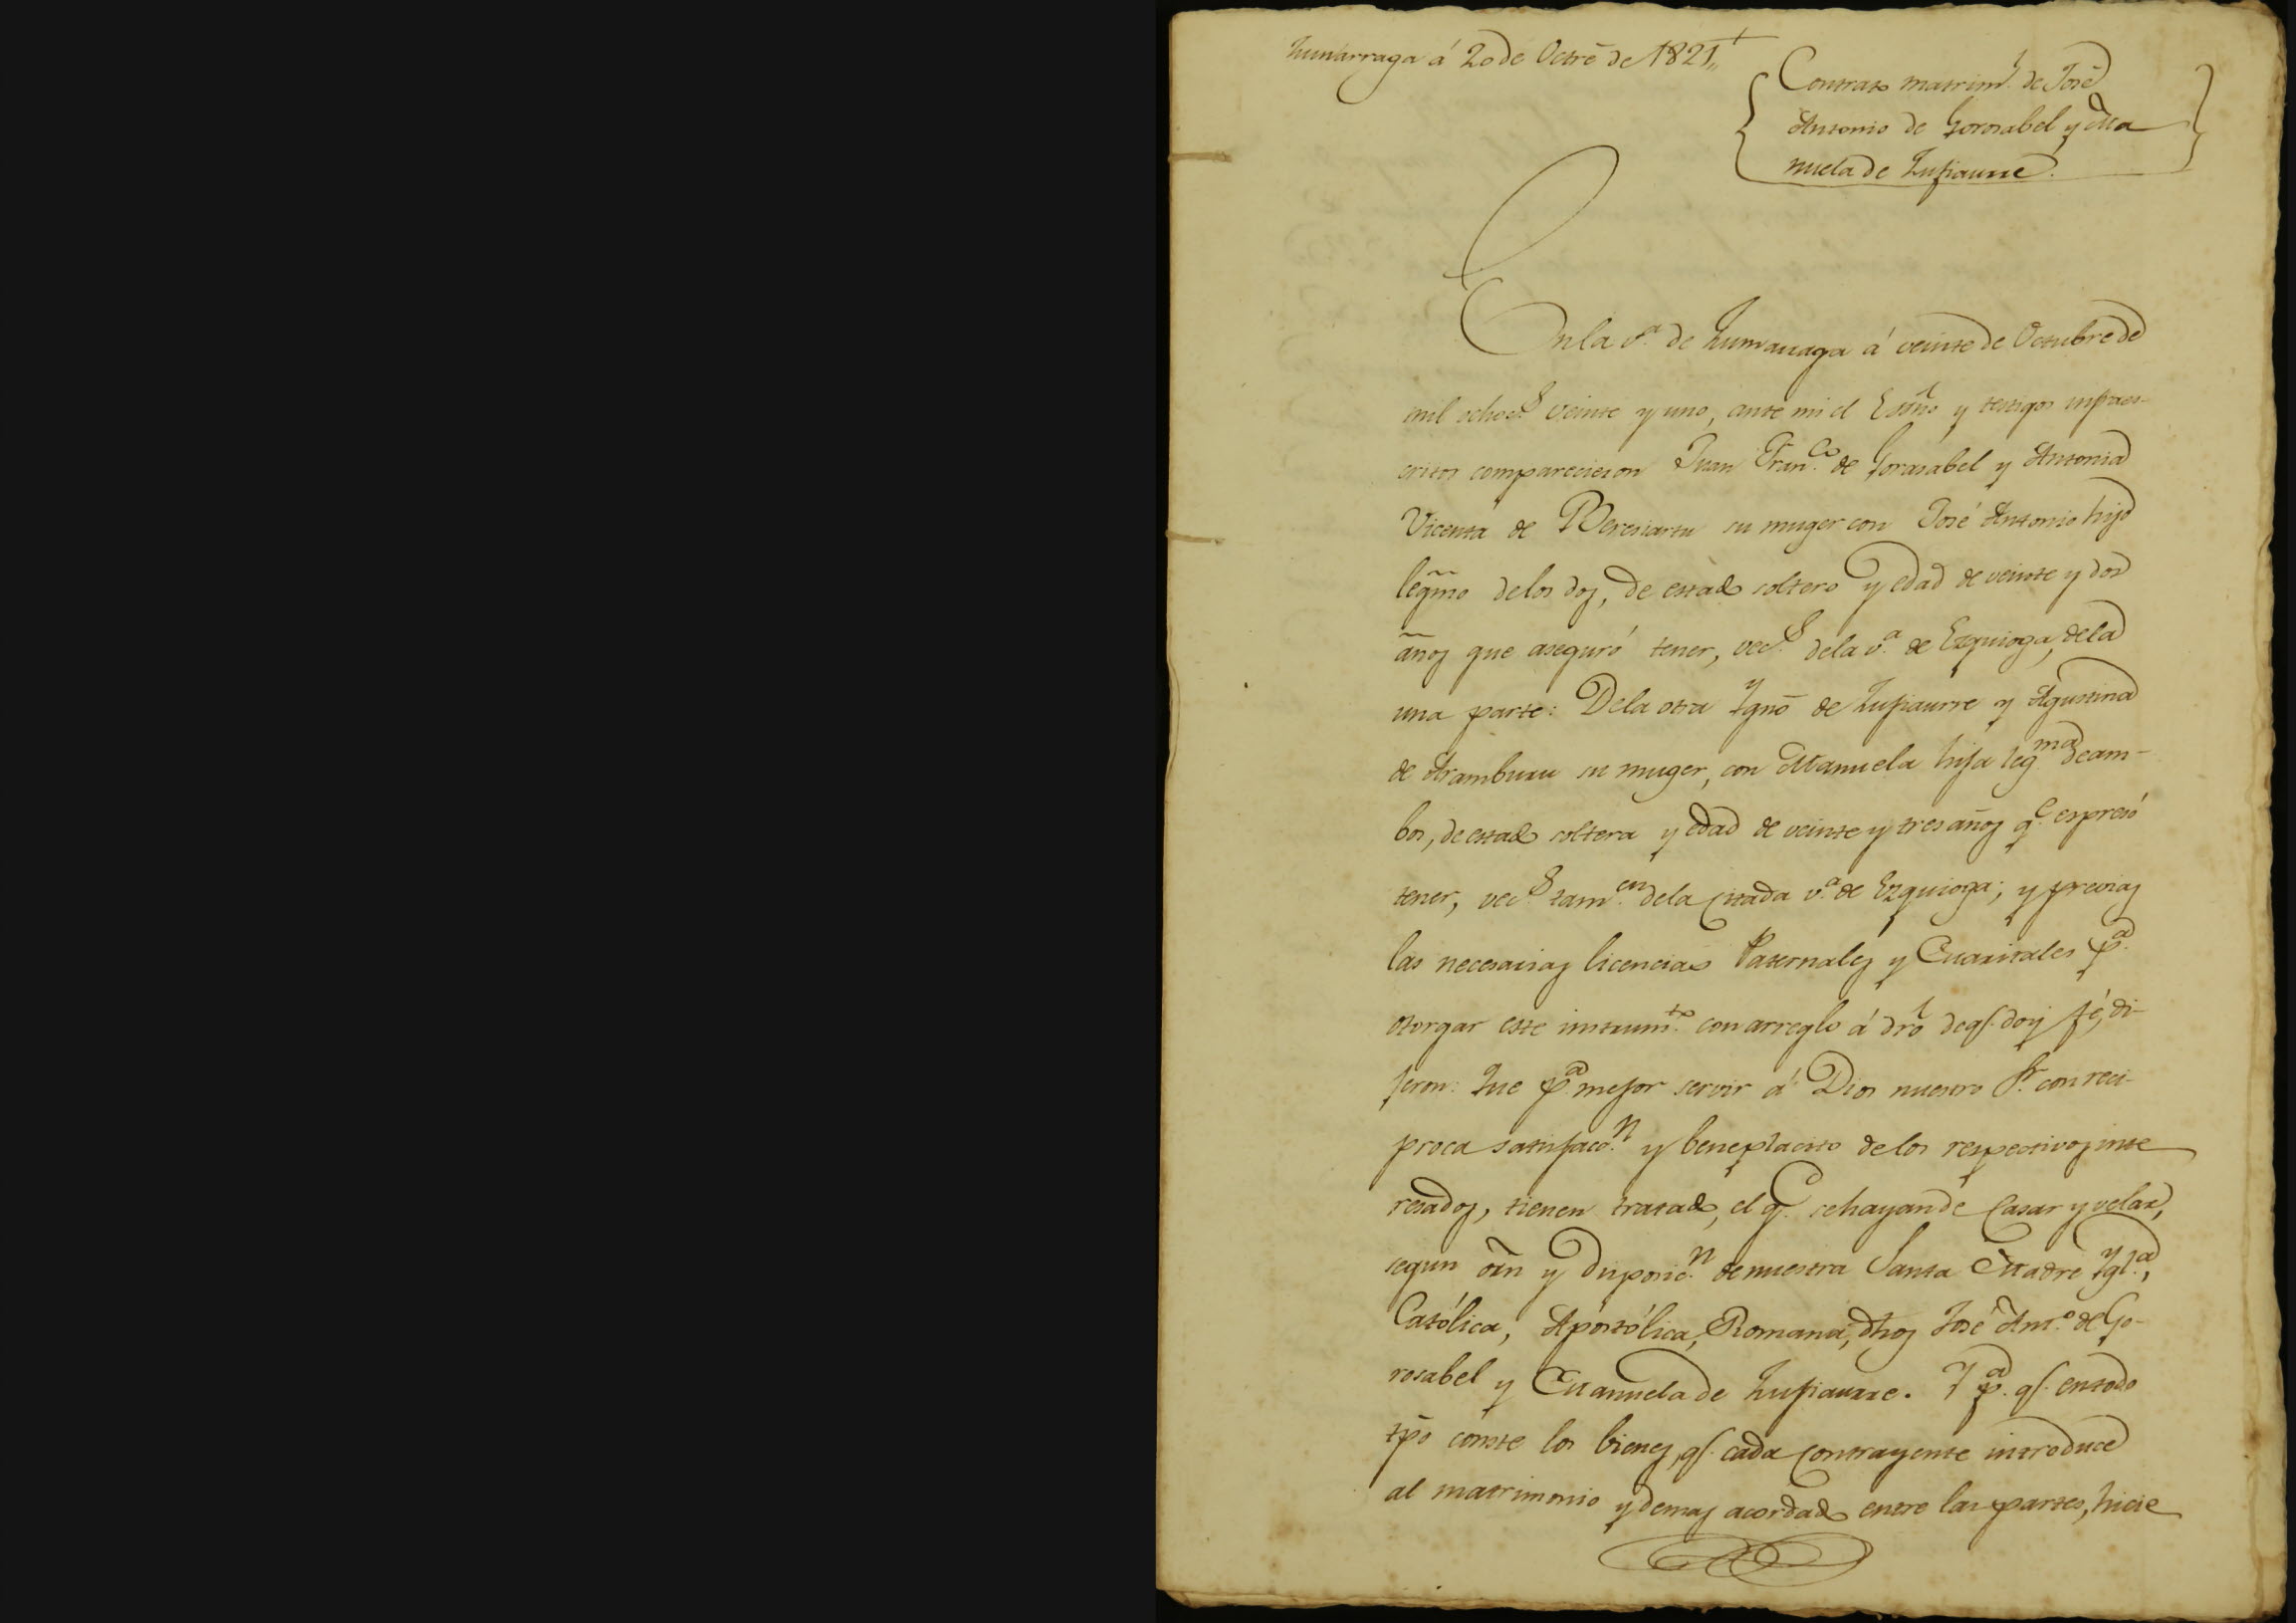 Zumarraga á 20 de Octrē de 1821,,
Contrato matrim.l de José
Antonio de Gorosabel y Ma
nuela de Zufiaurre.
En la v.a de Zumarraga á veinte de Octubre de
mil ochoc.s veinte y uno, ante mi el Esc̃no y testigos infraes-
critos comparecieron Juan Fran.co de Gorosabel y Antonia
Vicenta de Bereciartu su muger con José Antonio hijo
leg̃mo de los dos, de estado soltero y edad de veinte y dos
años que aseguró tener, vec.s de la v.a de Ezquioga, de la
una parte: De la otra Ygnō de Zufiaurre y Agustina
de Aramburu su muger, con Manuela hija leg.ma de am-
bos, de estado soltera y edad de veinte y tres años q.e espresó
tener, vec.s tam.en de la citada v.a de Ezquioga; y previas
las necesarias licencias Paternales y Maritales p.a
otorgar este instrum.to con arreglo á dr̃o de q.e doy fé, di-
jeron: Que p.a mejor servir á Dios nuestro S.r con reci-
proca satisfacc.n y beneplacito de los respectivos inte
resados, tienen tratado, el q.e se hayan de casar y velar,
segun or̃n y disposic.n de nuestra Santa Madre Ygl.a,
Católica, Apostólica, Romana, dhos José Ant.o de Go-
rosabel y Manuela de Zufiaurre. Y p.a q.e en todo
tp̄o conste los bienes, q.e cada contrayente introduce
al matrimonio y demas acordado entre las partes, hicie